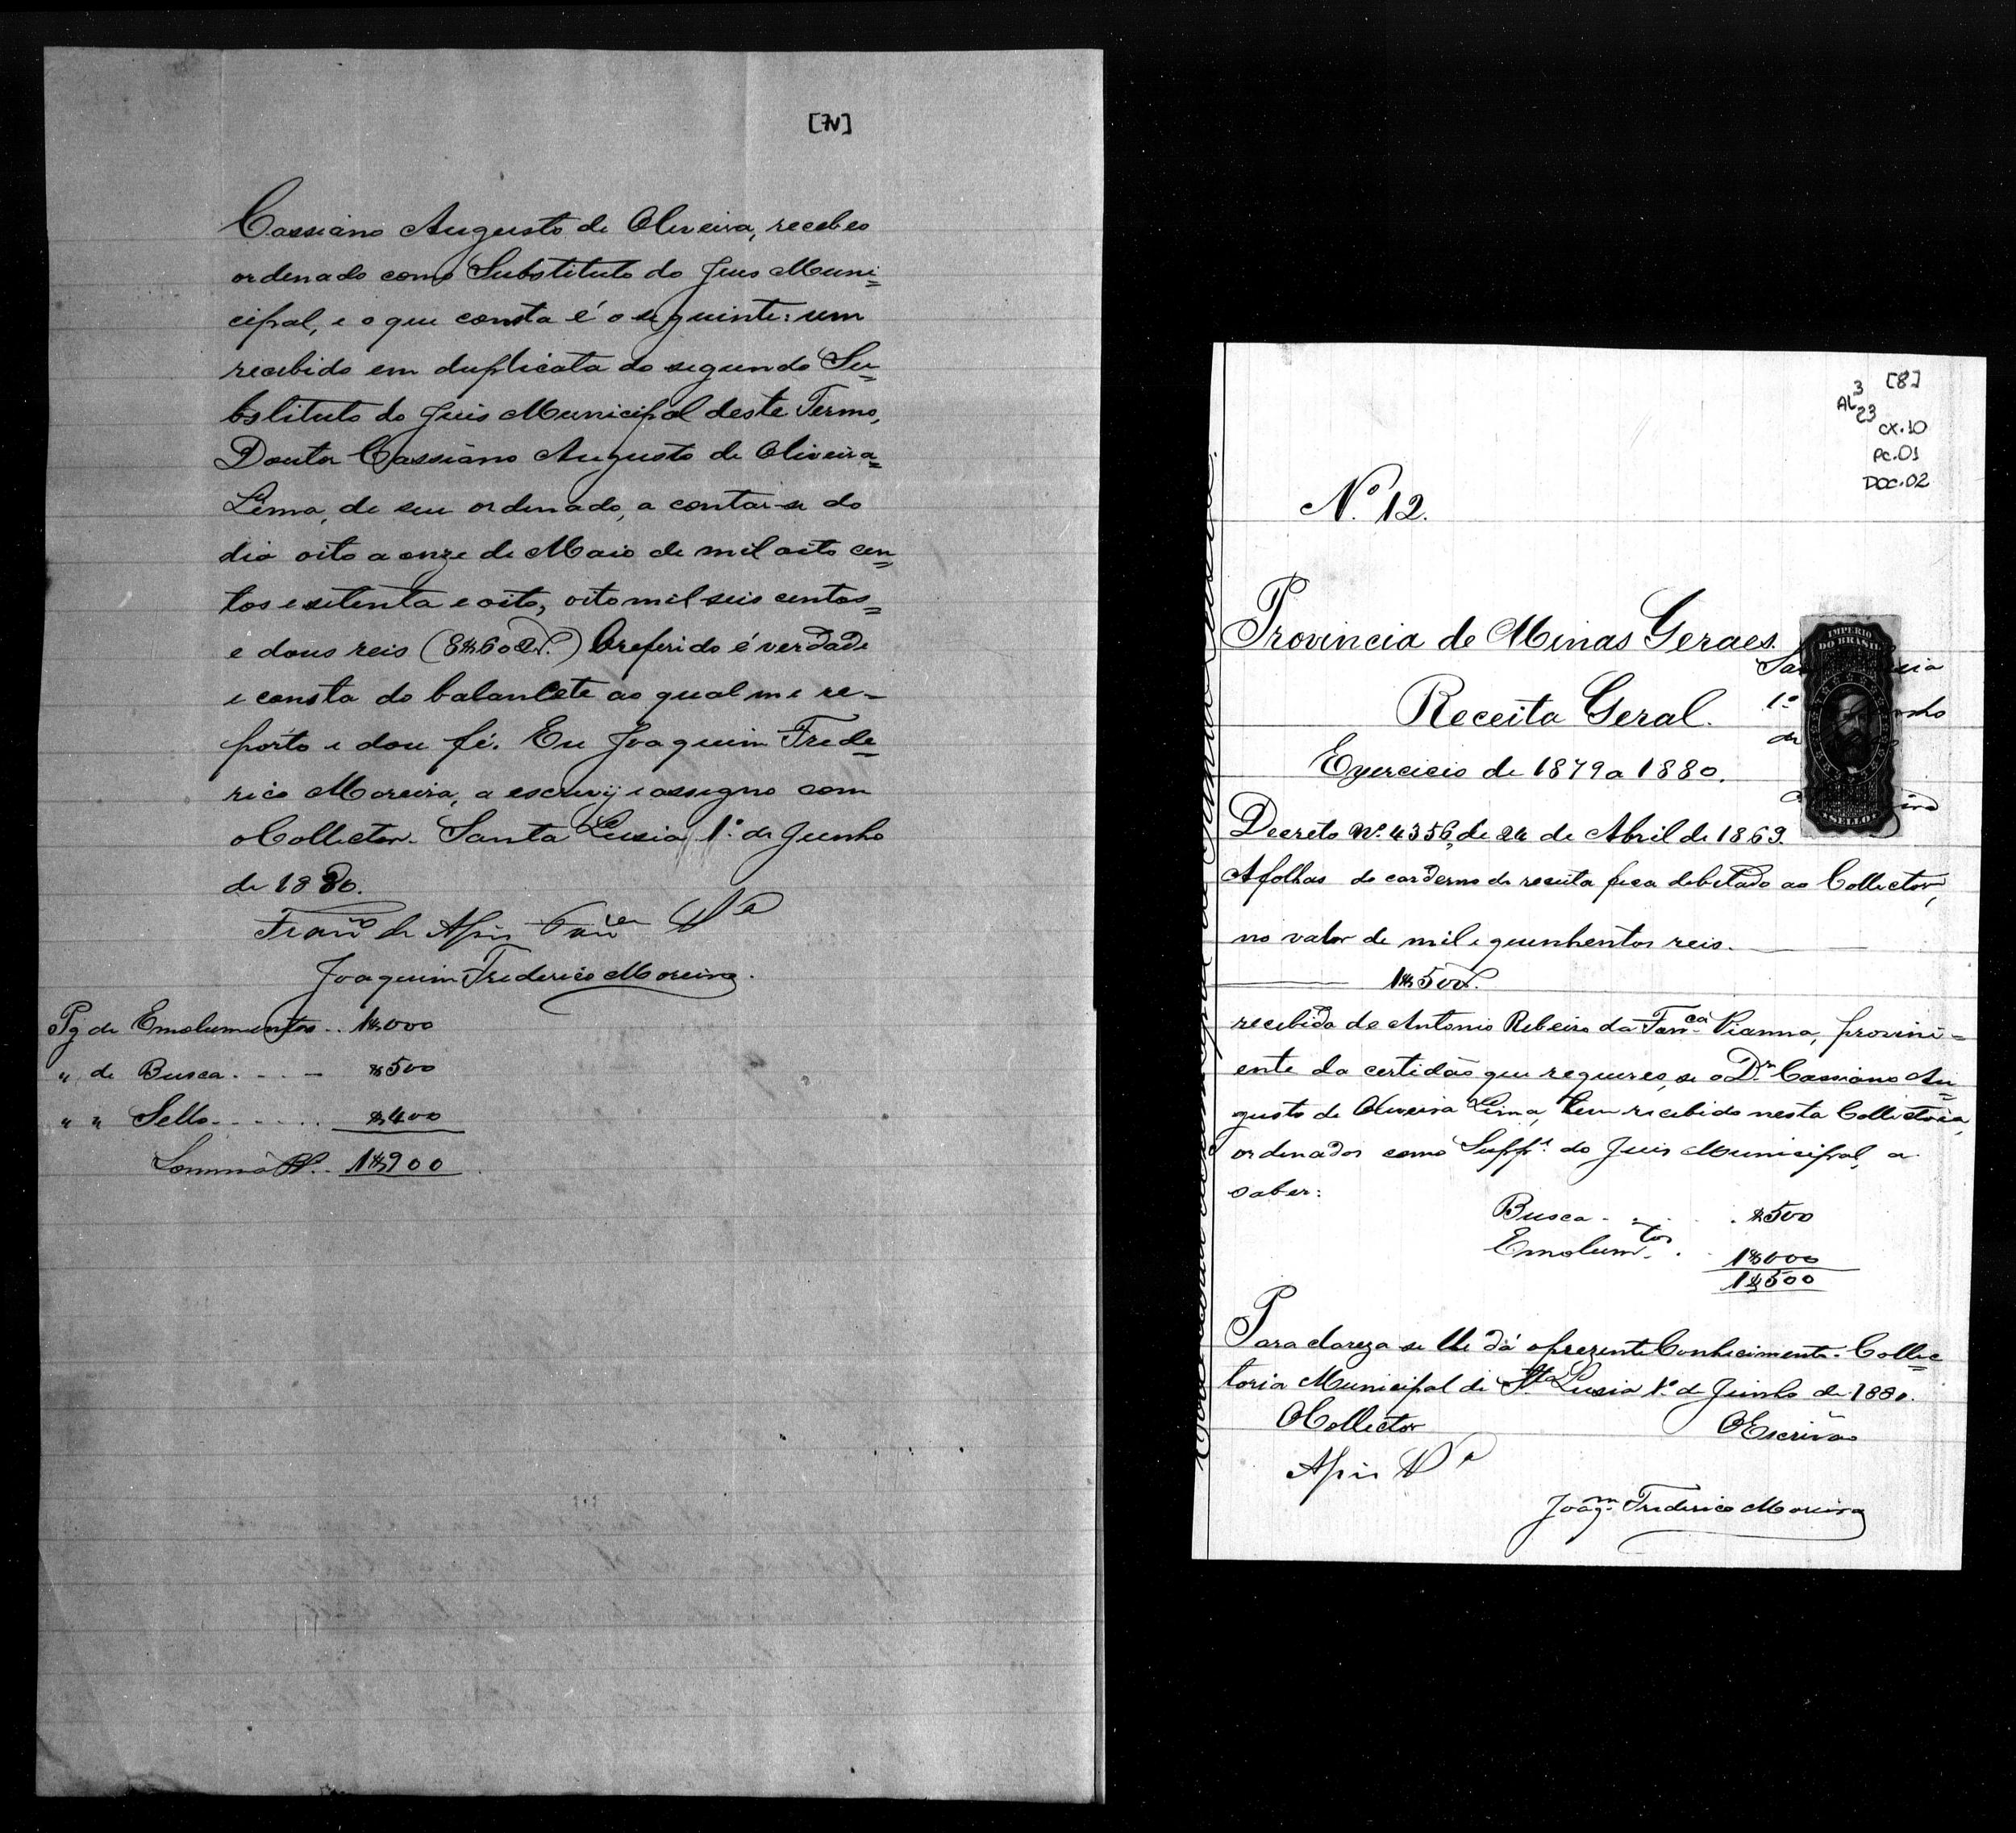 [7V]
Cassiano Augusto de Oliveira, recebeo
ordenado como Substituto do Juis Muni=
cipal, e o que consta é o seguinte: um
recebido em duplicata do segundo Su=
bstituto do Juis Municipal deste Termo,
Doutor Cassiano Augusto de Oliveira=
Lima, de seu ordenado, a contar-se do
dia oito a onze de Maio de mil oito cen=
tos e setenta e oito, oito mil seis centos=
e dous reis (8$602.) O referido é verdade
e consta do balancete ao qual me re-
porto e dou fé. Eu Joaquim Frede=
rico Moreira, a escrevij e assigno com
o Collector. Santa Lusia 1º de Junho
de 1880.
Joaquim Frederico Moreira.
Pg de Emolumentos .. 1$000
" de Busca . . . - $500
" " Sello . . . . . . $400
Somma R. .. 1$900
[8]
AL 3
23
CX.10
PC.01
DOC.02
N.º 12.
Provincia de Minas Geraes.
IMPERIO
DO BRASIL
Receita Geral.
1º
de
Exercicio de 1879 a 1880.
SELLO
Decreto Nº. 4356, de 24 de Abril de 1869.
A folhas do carderno de receita fica debitado ao Collector,
no valor de mil e quinhentos reis.
1$500.
recebido de Antonio Ribeiro da Fon.ca Vianna, provini=
ente da certidão que requereo, se o Dr. Cassiano Au=
gusto de Oliveira Lima, tem recebido nesta Collectoria,
ordenados como Supp.e do Juis Municipal, a
saber:
Busca - . . . $500
Emolum.tos . . 1$000
1$500
Para clareza se lhe dá o prezente Conhecimento. Collec=
toria Municipal de Sta Lusia 1º de Junho de 1880.
O Collector O Escrivão
Joaq.m Frederico Moreira